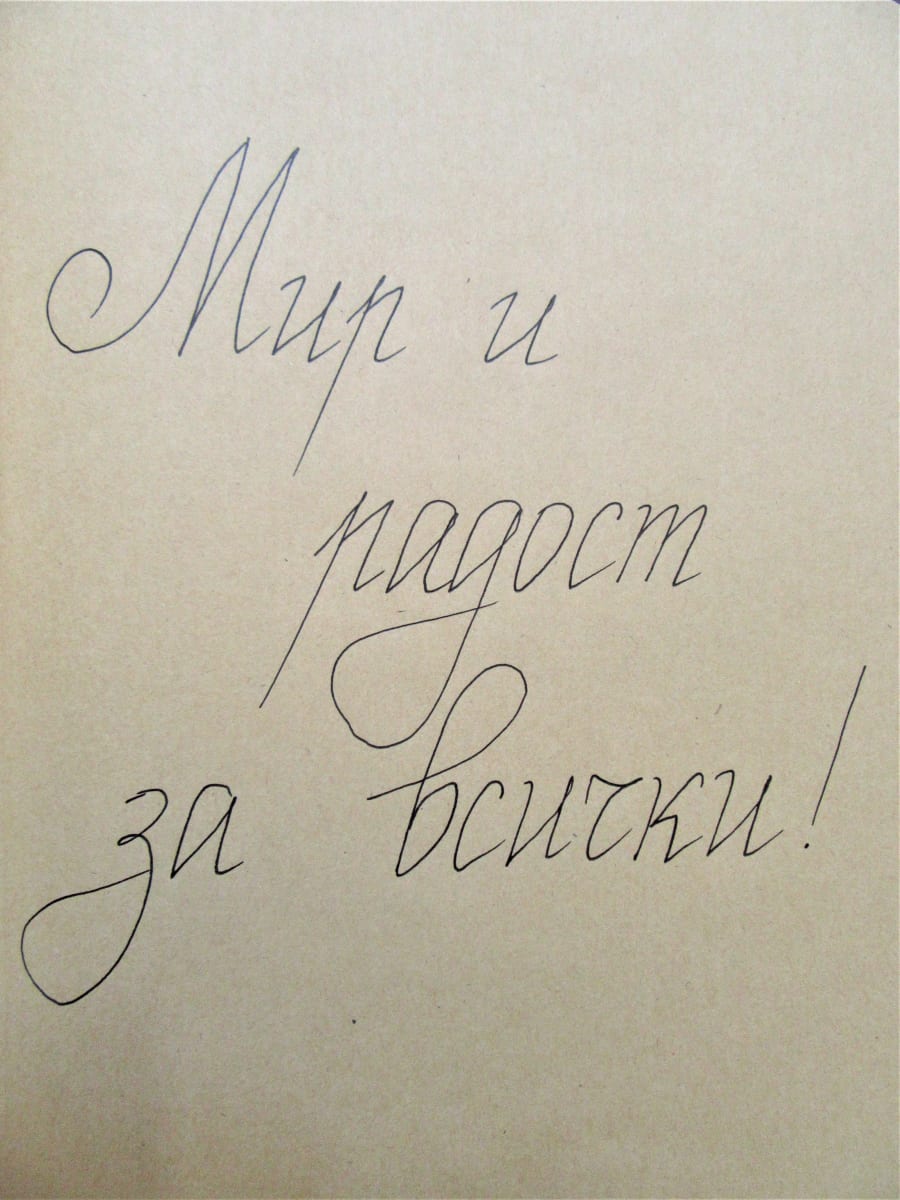 Мир и
радост
за всички!